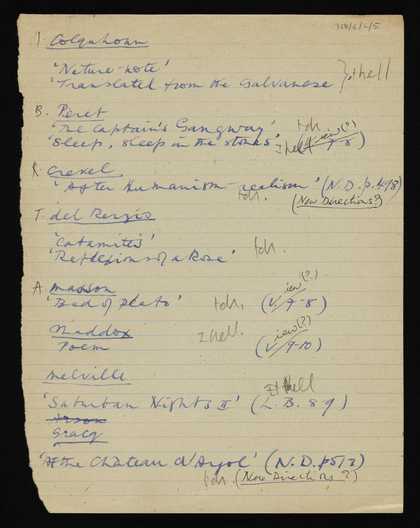 I. Colquhoun
'Nature-note'
'Translated from the Galvanese' } I hell
B. Peret
'The Captain's Gangway' tdh.
'Sleep, sleep in the stones' I hell (View(?) 7-8)
R. Crevel
'After Humanism-realism' (N.D. p. 498)
tdh. (New Directions?)
T. del Renzio
'Catamites'
'Reflexions of a Rose' tdh.
A. Masson
'Bed of Plato' tdh. (View(?) 7-8)
Maddox I hell.
Poem (View(?) 9-10)
Melville
II hell
'Saturban Nights II' (L.B. 89)
Gracq
'At the Château d'Argol' (N.D. p513)
tdh. (New Directions?)